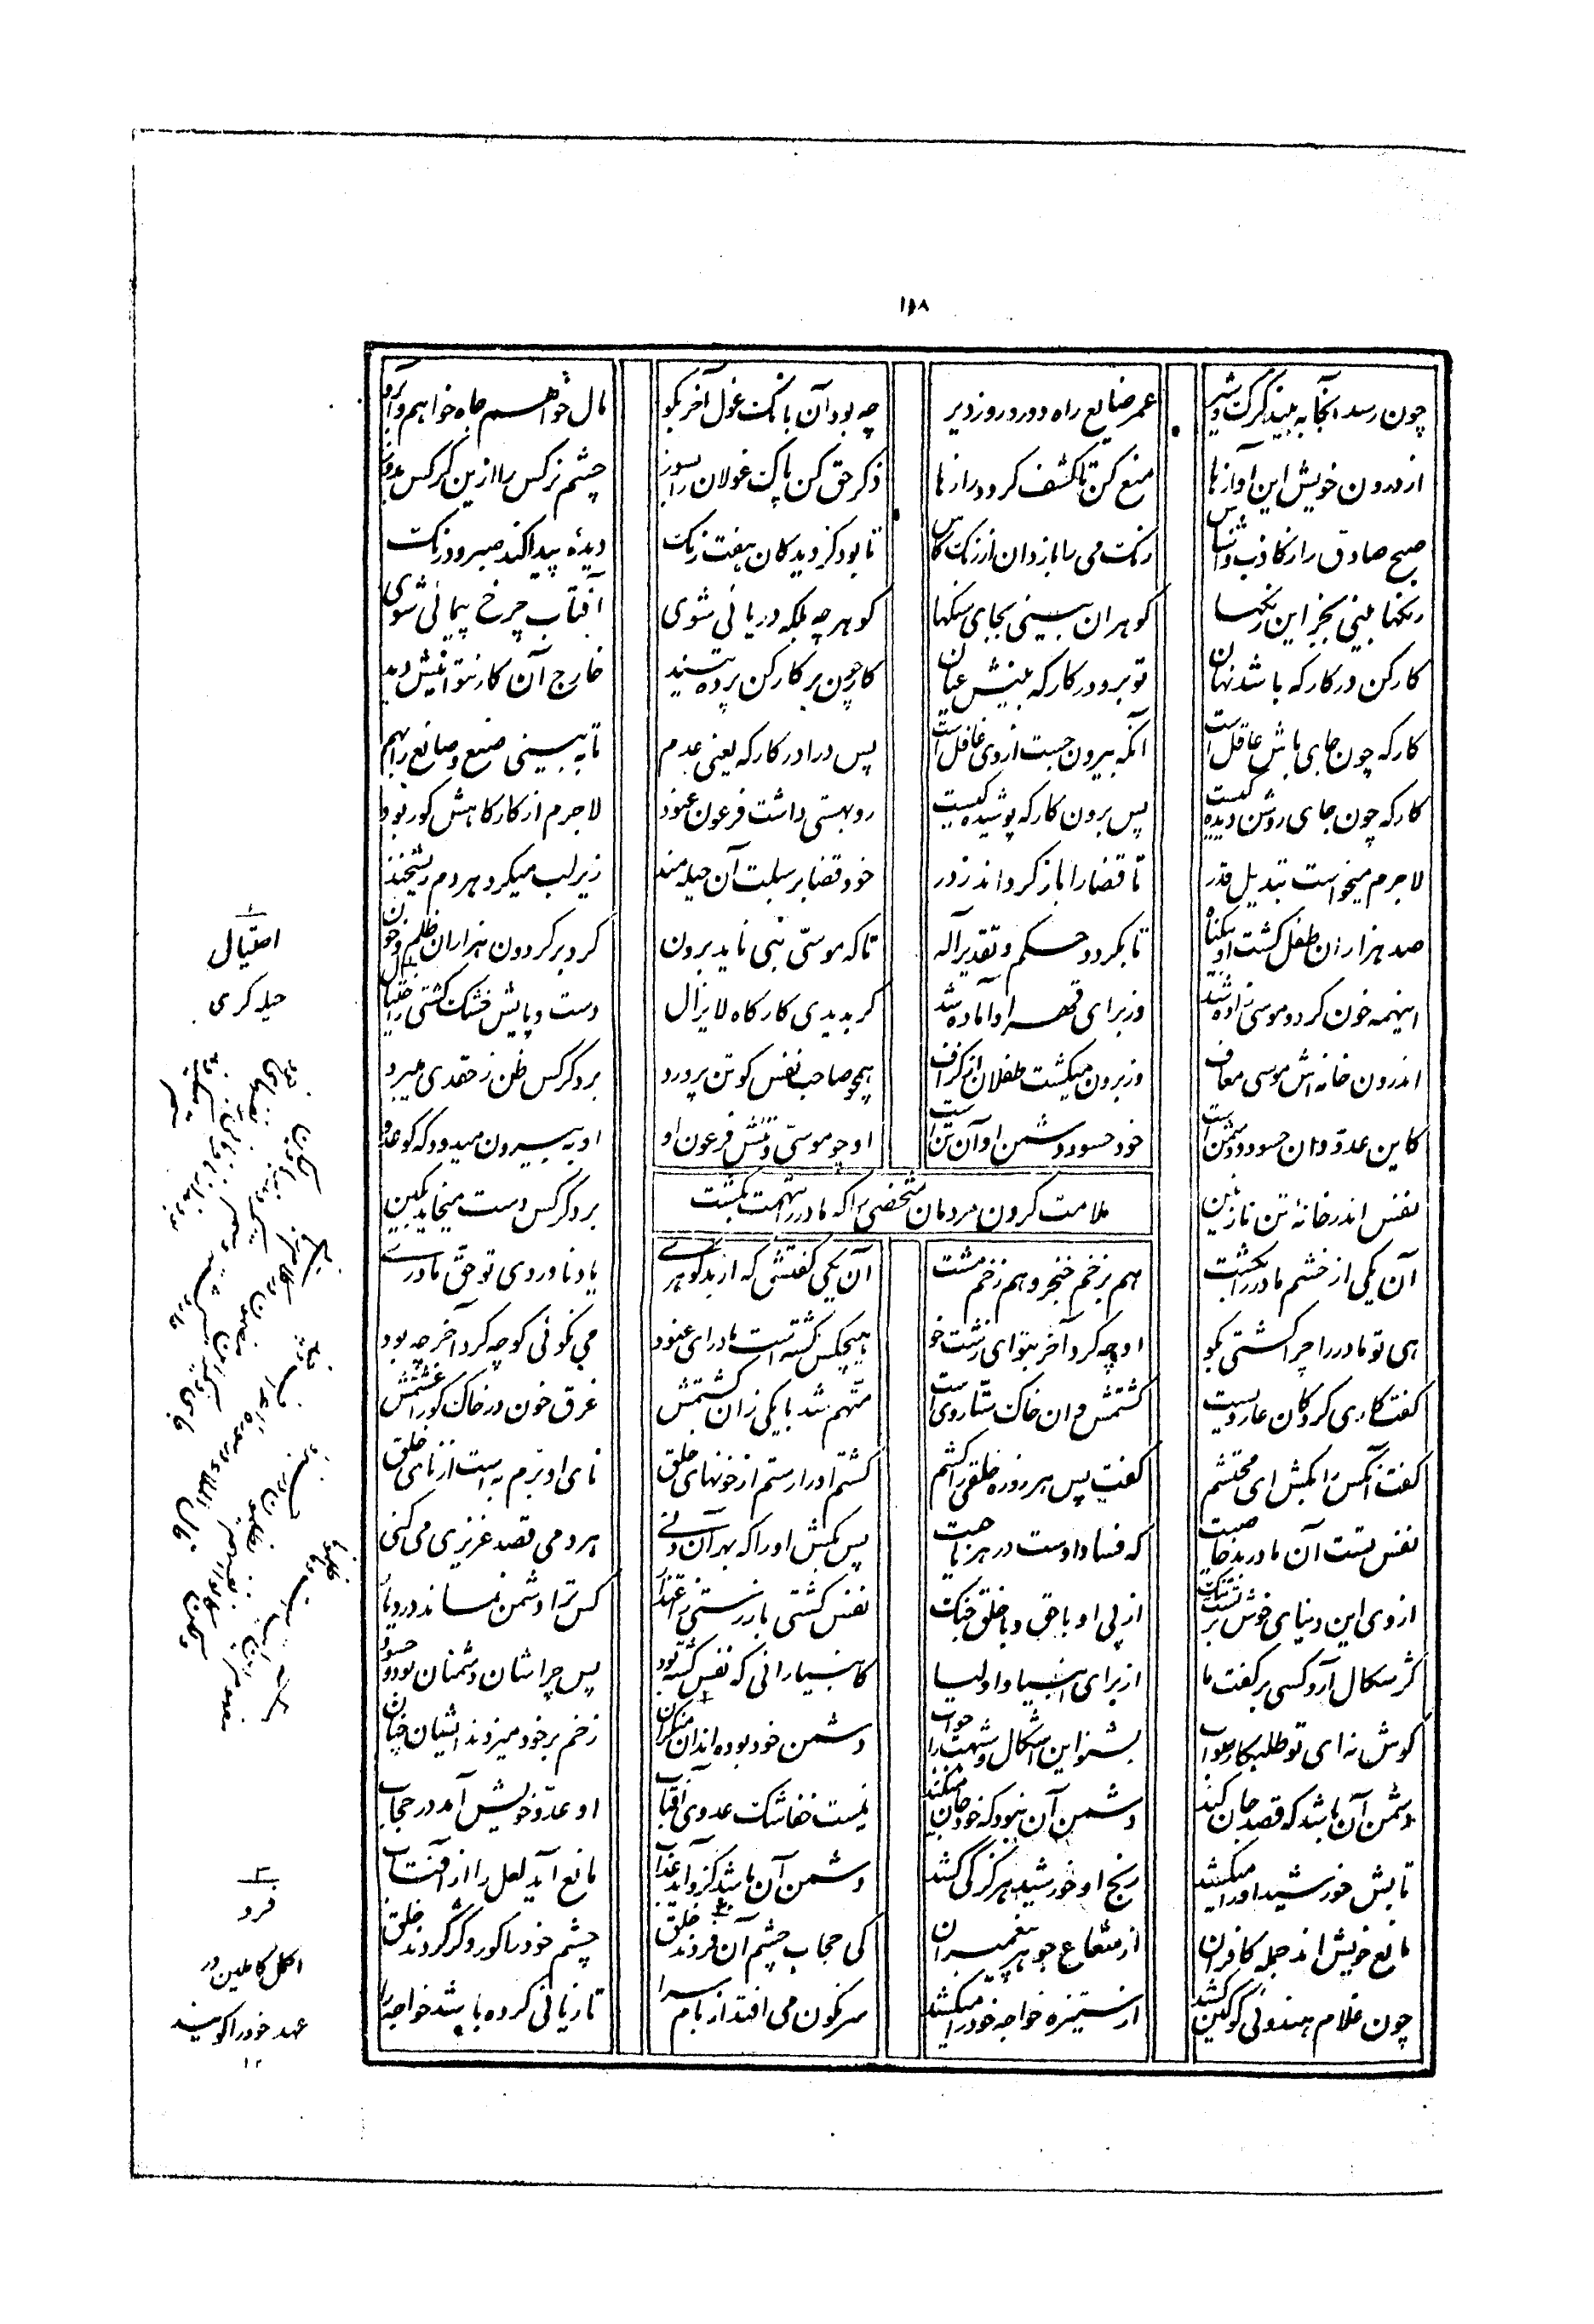 ۱۱۸
چون رسد آنجا به بیند گرگ و شیر    عمر ضایع راه دور و روز دیر    چه بود آن بانگ غول آخر بگو    مال خواهم جاه خواهم و آبرو
از درون خویش این آوازها    منع کن تا کشف گردد رازها    ذکر حق کن بانگ غولان را بسوز    چشم نرگس را ازین کرکس بدوز
صبح صادق را ز کاذب وا شناس    رنگ می را باز دان از رنگ کاس    تا بود کز دیدگان هفت رنگ    دیدهٔ پیدا کند صبر و درنگ
رنگها بینی بجز این رنگها    گوهران بینی بجای سنگها    گوهر چه بلکه دریائی شوی    آفتاب چرخ پیمائی شوی
کارکن در کارگه باشد نهان    تو برو در کارگه بینش عیان    کار چون بر کارکن پرده تنید    خارج آن کار نتوانیش دید
کارگه چون جای باش عاقل است    آنکه بیرون جست از وی غافل است    پس درا در کارگه یعنی عدم    تا به بینی صنع و صانع را بهم
کارگه چون جای روشن دیده گیست    پس برون کارگه پوشیده گیست    رو بهستی داشت فرعون عنود    لاجرم از کارگاهش کور بود
لاجرم میخواست تبدیل قدر    تا قضا را باز گرداند ز در    خود قضا بر سبلت آن حیله مند    زیر لب میکرد هر دم ریشخند
صد هزاران طفل کشت او بیگناه    تا بگردد حکم و تقدیر اله    تا که موسی نبی ناید برون    کرد بر گردون هزاران ظلم و خون
اینهمه خون کرد و موسی زاده شد    وز برای قهر او آماده شد    گر بدیدی کارگاه لایزال    دست و پایش خشک گشتی ز احتیال
اندرون خانه اش موسی معاف    وز برون میکشت طفلان از گزاف    همچو صاحب نفس کو تن پرورد    بر دگر کس ظن ز حقدی میبرد
کاین عدو و آن حسود و دشمن است    خود حسود و دشمن او آن تن است    او چو موسی و تنش فرعون او    او به بیرون میدود که کو عدو
نفس اندر خانهٔ تن نازنین    بر دگر کس دست میخاید بکین
ملامت کردن مردمان شخصی را که مادر را بتهمت بکشت
آن یکی از خشم مادر را بکشت    هم بزخم خنجر و هم زخم مشت    آن یکی گفتش که از بدگوهری    یاد ناوردی تو حق مادری
هی تو مادر را چرا کشتی بگو    او چه کرد آخر بتو ای زشت خو    هیچکس کشته است مادر ای عنود    می نگوئی کو چه کرد آخر چه بود
گفت کاری کرد کان عار ویست    کشتمش کان خاک ستار وی است    متهم شد با یکی زان کشتمش    غرق خون در خاک گور آغشتمش
گفت آنکس را بکش ای محتشم    گفت پس هر روز خلقی را کشم    کشتم او را رستم از خونهای خلق    نای او برم به است از نای خلق
نفس تست آن مادر بد خاصیت    که فساد اوست در هر ناحیت    پس بکش او را که بهر آن دنی    هر دمی قصد عزیزی می کنی
از وی این دنیای خوش بر تست تنگ    از پی او با حق و با خلق جنگ    نفس کشتی باز رستی ز اعتذار    کس ترا دشمن نماند در دیار
گر شکال آرد کسی بر گفت ما    از برای انبیا و اولیا    کانبیا را نی که نفس کشته بود    پس چرا شان دشمنان بود و حسود
گوش نه ای تو طلبکار صواب    بشنو این اشکال و شبهت را جواب    دشمن خود بوده اند آن منکران    زخم بر خود میزدند ایشان چنان
دشمن آن باشد که قصد جان کند    دشمن آن نبود که خود جان میکند    نیست خفاشک عدوی آفتاب    او عدو خویش آمد در حجاب
تابش خورشید او را میکشد    رنج او خورشید هرگز کی کشد    دشمن آن باشد کزو آید عذاب    مانع آید لعل را از آفتاب
مانع خویش اند جمله کافران    از شعاع جوهر پیغمبران    کی حجاب چشم آن فردند خلق    چشم خود را کور و کژ کردند خلق
چون غلام هندوئی کو کین کشد    از ستیزه خواجه خود را میکشد    سرنگون می افتد از بام سرا    تا زیانی کرده باشد خواجه را
احتیال
حیله گری
۲
فرد
اکمل کاملین در
عهد خود را گویند
۱۲